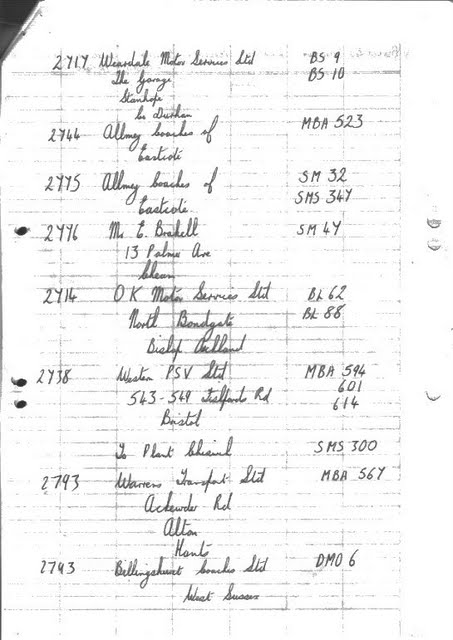 2717 Weardale Motor Services Ltd BS 9
The Garage BS 10
Stanhope
Co Durham
2744 Allmey Coaches of MBA 523
Eastcote
2775 Allmey Coaches of SM 32
Eastcote SMS 347
2776 Mr E. Brakell SM 47
13 Palmer Ave
Cheam
2714 OK Motor Services Ltd BL 62
North Bondgate BL 88
Bishop Auckland
2738 Western PSV Ltd MBA 594
543-549 Rd 601
Bristol 614
To Plant SMS 300
2793 Warrens Transport Ltd MBA 567
Rd
Alton
Hants
2743 Billingshurst Coaches Ltd DMO 6
West Sussex